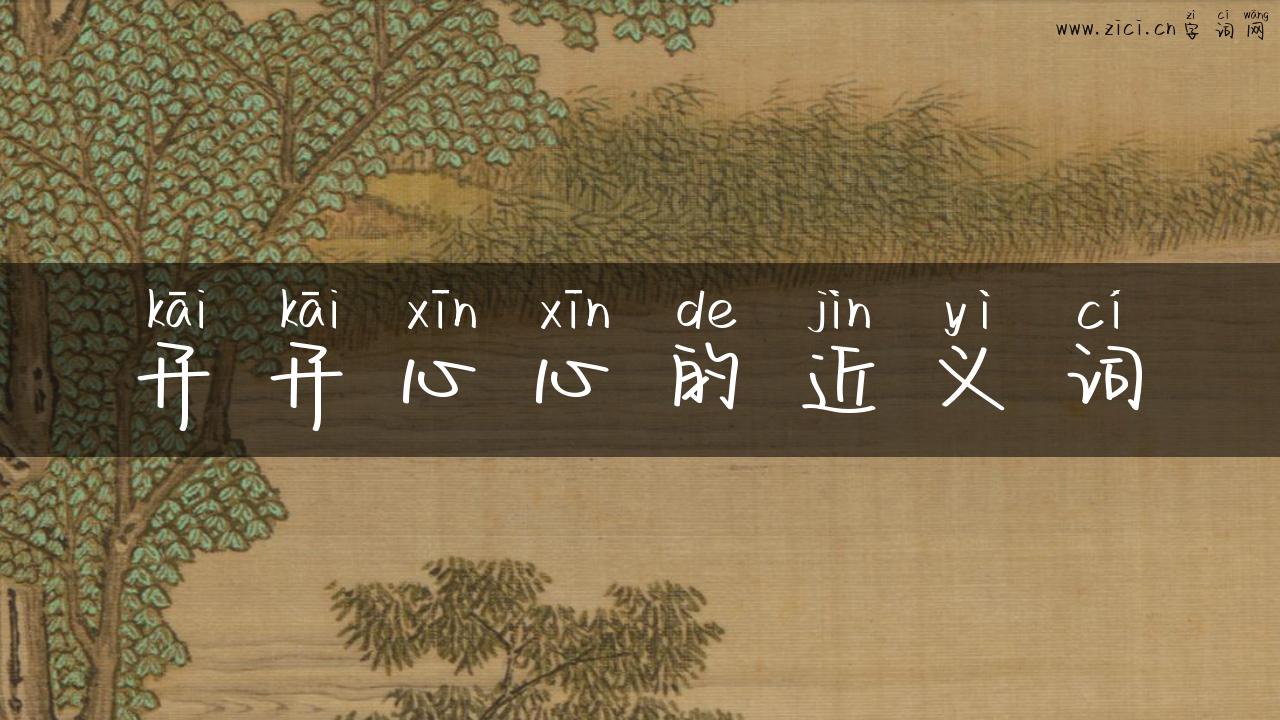 zì cí wǎng
www.zici.cn字词网
kāi kāi xīn xīn de jìn yì cí
开开心心的近义词